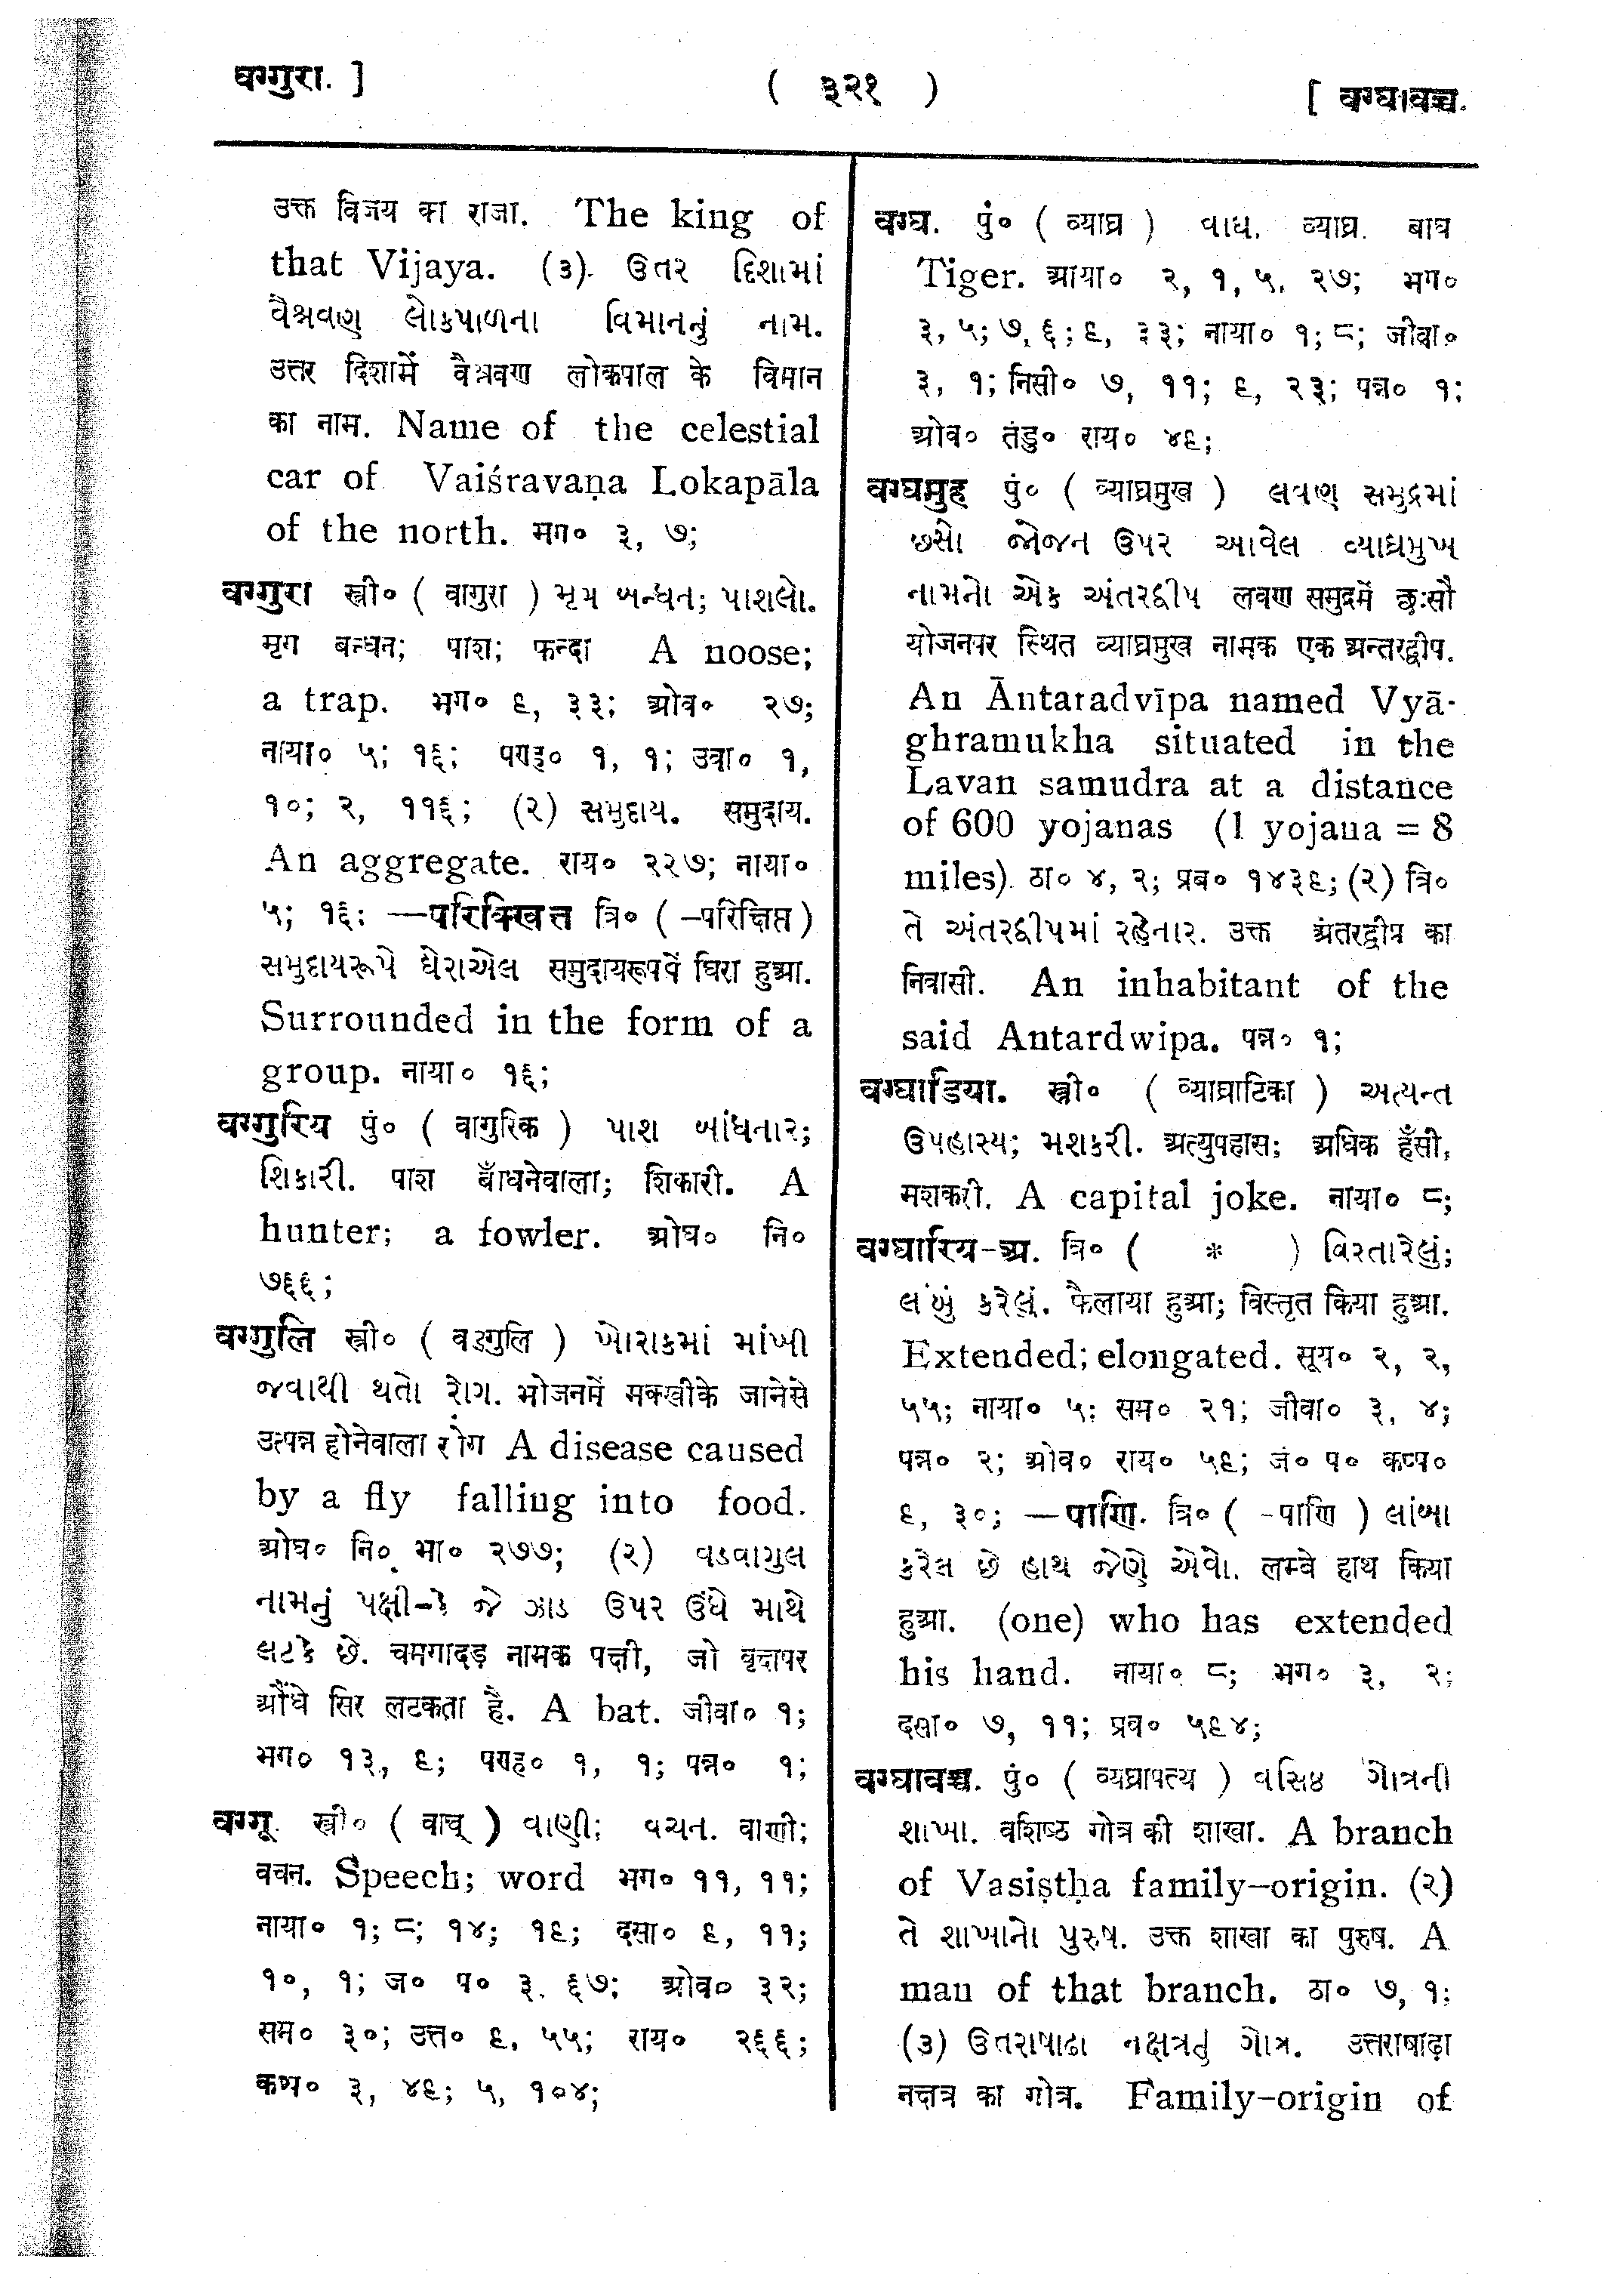 वग्गुरा. ]
( ३२१ )
[ वग्घावच्च.
उक्त विजय का राजा. The king of
that Vijaya. (३). ઉતર દિશામાં
વૈશ્રવણ લોકપાળના વિમાનનું નામ.
उत्तर दिशामें वैश्रवण लोकपाल के विमान
का नाम. Name of the celestial
car of Vaiśravaṇa Lokapāla
of the north. भग० ३, ७;
वग्गुरा स्त्री० ( वागुरा ) મૃગ બન્ધન; પાશલો.
मृग बन्धन; पाश; फन्दा A noose;
a trap. भग० ९, ३३; ओव० २७;
नाया० ५; १६; पण्ह० १, १; उवा० १,
१०; २, ११६; (२) સમુદાય. समुदाय.
An aggregate. राय० २२७; नाया०
५; १६: —परिक्खित्त त्रि० ( –परिक्षिप्त )
સમુદાયરૂપે ઘેરાએલ समुदायरूपमें घिरा हुआ.
Surrounded in the form of a
group. नाया० १६;
वग्गुरिय पुं० ( वागुरिक ) પાશ બાંધનાર;
શિકારી. पाश बाँधनेवाला; शिकारी. A
hunter; a fowler. ओघ० नि०
७६६;
वग्गुलि स्त्री० ( वड्गुलि ) ખોરાકમાં માંખી
જવાથી થતો રોગ. भोजनमें मक्खीके जानेसे
उत्पन्न होनेवाला रोग A disease caused
by a fly falling into food.
ओघ० नि० भा० २७७; (२) વડવાગુલ
નામનું પક્ષી–કે જે ઝાડ ઉપર ઉંધે માથે
લટકે છે. चमगादड़ नामक पक्षी, जो वृक्षपर
औंधे सिर लटकता है. A bat. जीवा० १;
भग० १३, ९; पण्ह० १, १; पन्न० १;
वग्गू. स्त्री० ( वाच् ) વાણી; વચન. वाणी;
वचन. Speech; word भग० ११, ११;
नाया० १; ८; १४; १६; दसा० ९, ११;
१०, १; ज० प० ३. ६७; ओव० ३२;
सम० ३०; उत्त० ९. ५५; राय० २६६;
कप्प० ३, ४९; ५, १०४;
वग्घ. पुं० ( व्याघ्र ) વાઘ. व्याघ्र. बाघ
Tiger. आया० २, १, ५, २७; भग०
३, ५; ७, ६; ९, ३३; नाया० १; ८; जीवा०
३, १; निसी० ७, ११; ९, २३; पन्न० १;
ओव० तंडु० राय० ४९;
वग्घमुह पुं० ( व्याघ्रमुख ) લવણ સમુદ્રમાં
છસો જોજન ઉપર આવેલ વ્યાઘ્રમુખ
નામનો એક અંતરદ્વીપ लवण समुद्रमें छःसौ
योजनपर स्थित व्याघ्रमुख नामक एक अन्तरद्वीप.
An Āntaradvīpa named Vyā-
ghramukha situated in the
Lavan samudra at a distance
of 600 yojanas (1 yojana = 8
miles). ठा० ४, २; प्रव० १४३९; (२) त्रि०
તે અંતરદ્વીપમાં રહેનાર. उक्त अंतरद्वीप का
निवासी. An inhabitant of the
said Antardwipa. पन्न० १;
वग्घाडिया. स्त्री० ( व्याघ्राटिका ) અત્યન્ત
ઉપહાસ્ય; મશકરી. अत्युपहास; अधिक हँसी,
मशकरी. A capital joke. नाया० ८;
वग्घारिय-अ. त्रि० ( * ) વિસ્તારેલું;
લાંબું કરેલું. फैलाया हुआ; विस्तृत किया हुआ.
Extended; elongated. सूय० २, २,
५५; नाया० ५; सम० २१; जीवा० ३, ४;
पन्न० २; ओव० राय० ५९; जं० प० कप्प०
९, ३०; —पाणि. त्रि० ( -पाणि ) લાંબા
કરેલ છે હાથ જેણે એવો. लम्बे हाथ किया
हुआ. (one) who has extended
his hand. नाया० ८; भग० ३, २;
दसा० ७, ११; प्रव० ५९४;
वग्घावच्च. पुं० ( व्यघ्रापत्य ) વસિષ્ઠ ગોત્રની
શાખા. वशिष्ठ गोत्र की शाखा. A branch
of Vasiṣṭha family-origin. (२)
તે શાખાનો પુરુષ. उक्त शाखा का पुरुष. A
man of that branch. ठा० ७, १;
(३) ઉતરાષાઢા નક્ષત્રનું ગોત્ર. उत्तराषाढ़ा
नक्षत्र का गोत्र. Family-origin of